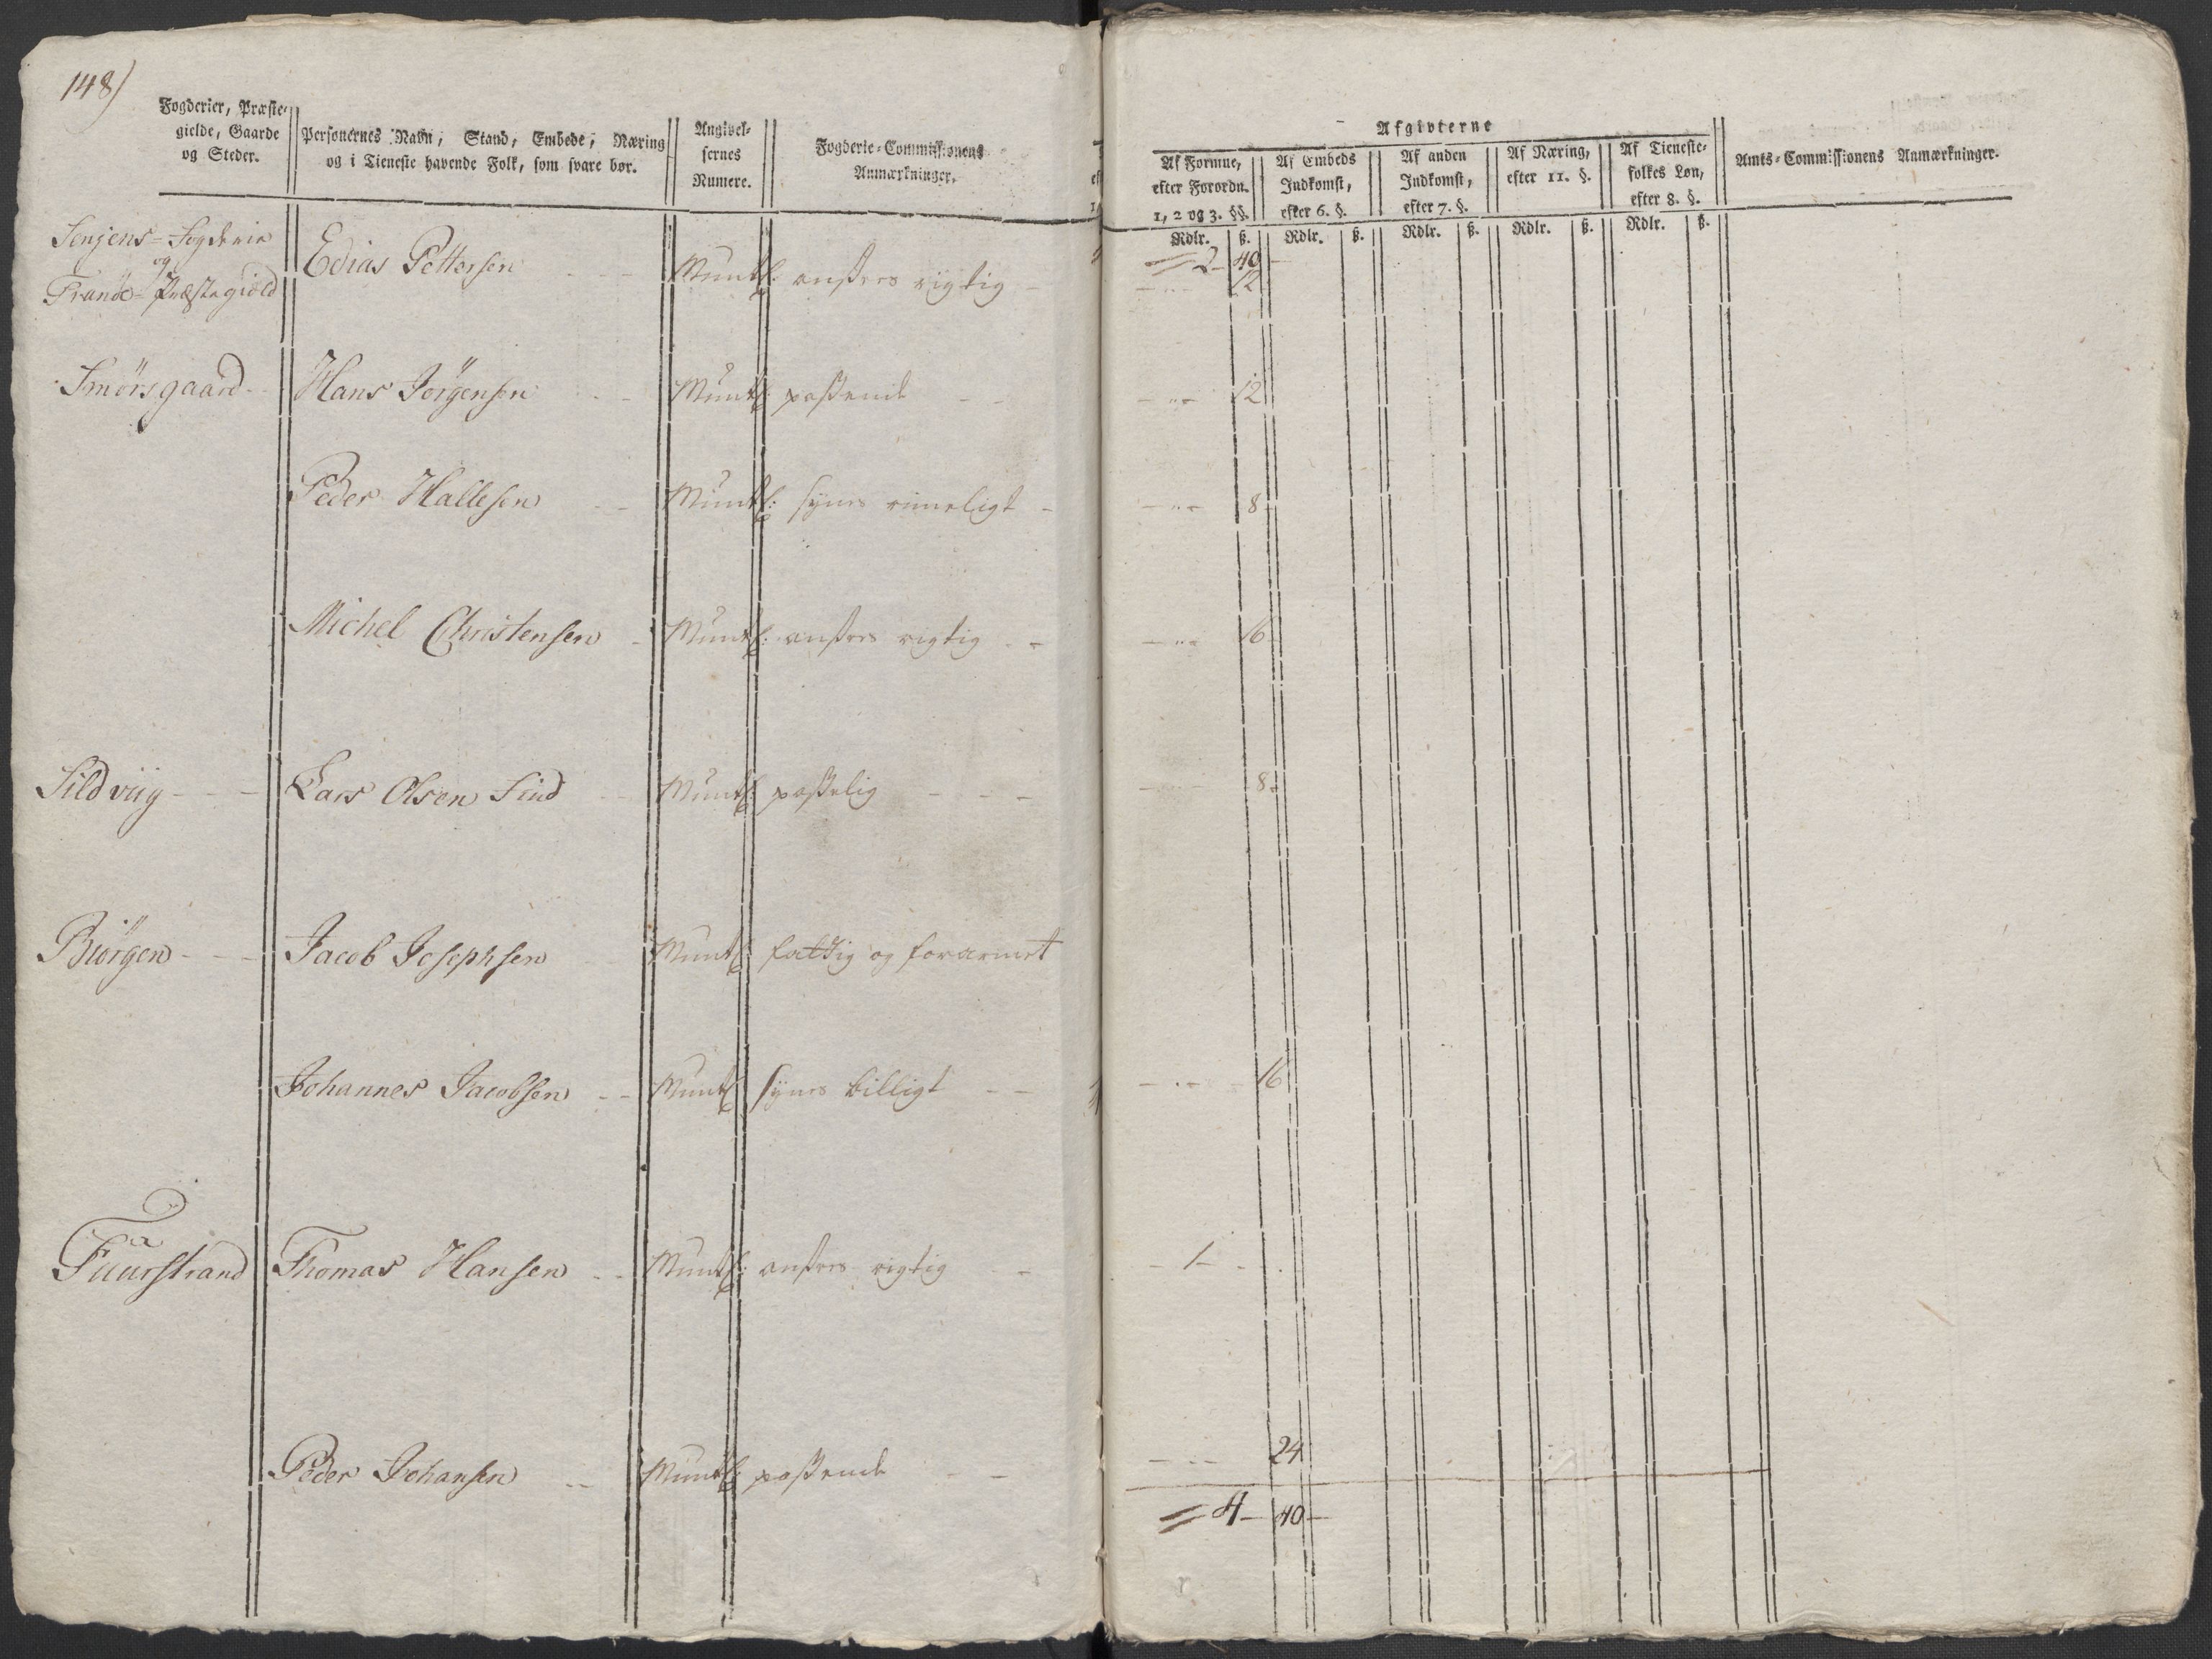 148)
Fogderier, Præste-
gielde, Gaarde
og Steder.
Personernes Navn, Stand, Embede, Næring
og i Tieneste havende Folk, som svare bør.
Angivel-
sernes
Numere.
Fogderie-Commissionens
Anmærkninger.
Afgivterne
Af Formue,
efter Forordn.
1, 2 og 3. §§.
Af Embeds
Indkomst,
efter 6. §.
Af anden
Indkomst,
efter 7. §.
Af Næring,
efter 11. §.
Af Tieneste-
folkes Løn,
efter 8. §.
Amts-Commissionens Anmærkninger.
Rdlr. ß. Rdlr. ß. Rdlr. ß. Rdlr. ß. Rdlr. ß.
Senjens-Fogderie
og
Tranöe-Præstegield
2 40
Edias Pettersen Muntl: ansees rigtig 12
Smörsgaard Hans Jörgensen Muntl: passende 12
Peder Hallesen Muntl: synes rimeligt 8
Michel Christensen Muntl: ansees rigtig 16
Sildviig Lars Olsen Find Muntl: passelig 8
Biörgen Jacob Josephsen Muntl: fattig og forarmet
Johannes Jacobsen Muntl: synes billigt 16
Fuurstrand Thomas Hansen Muntl: ansees rigtig 1
Peder Johansen Muntl: passende 24
4 40